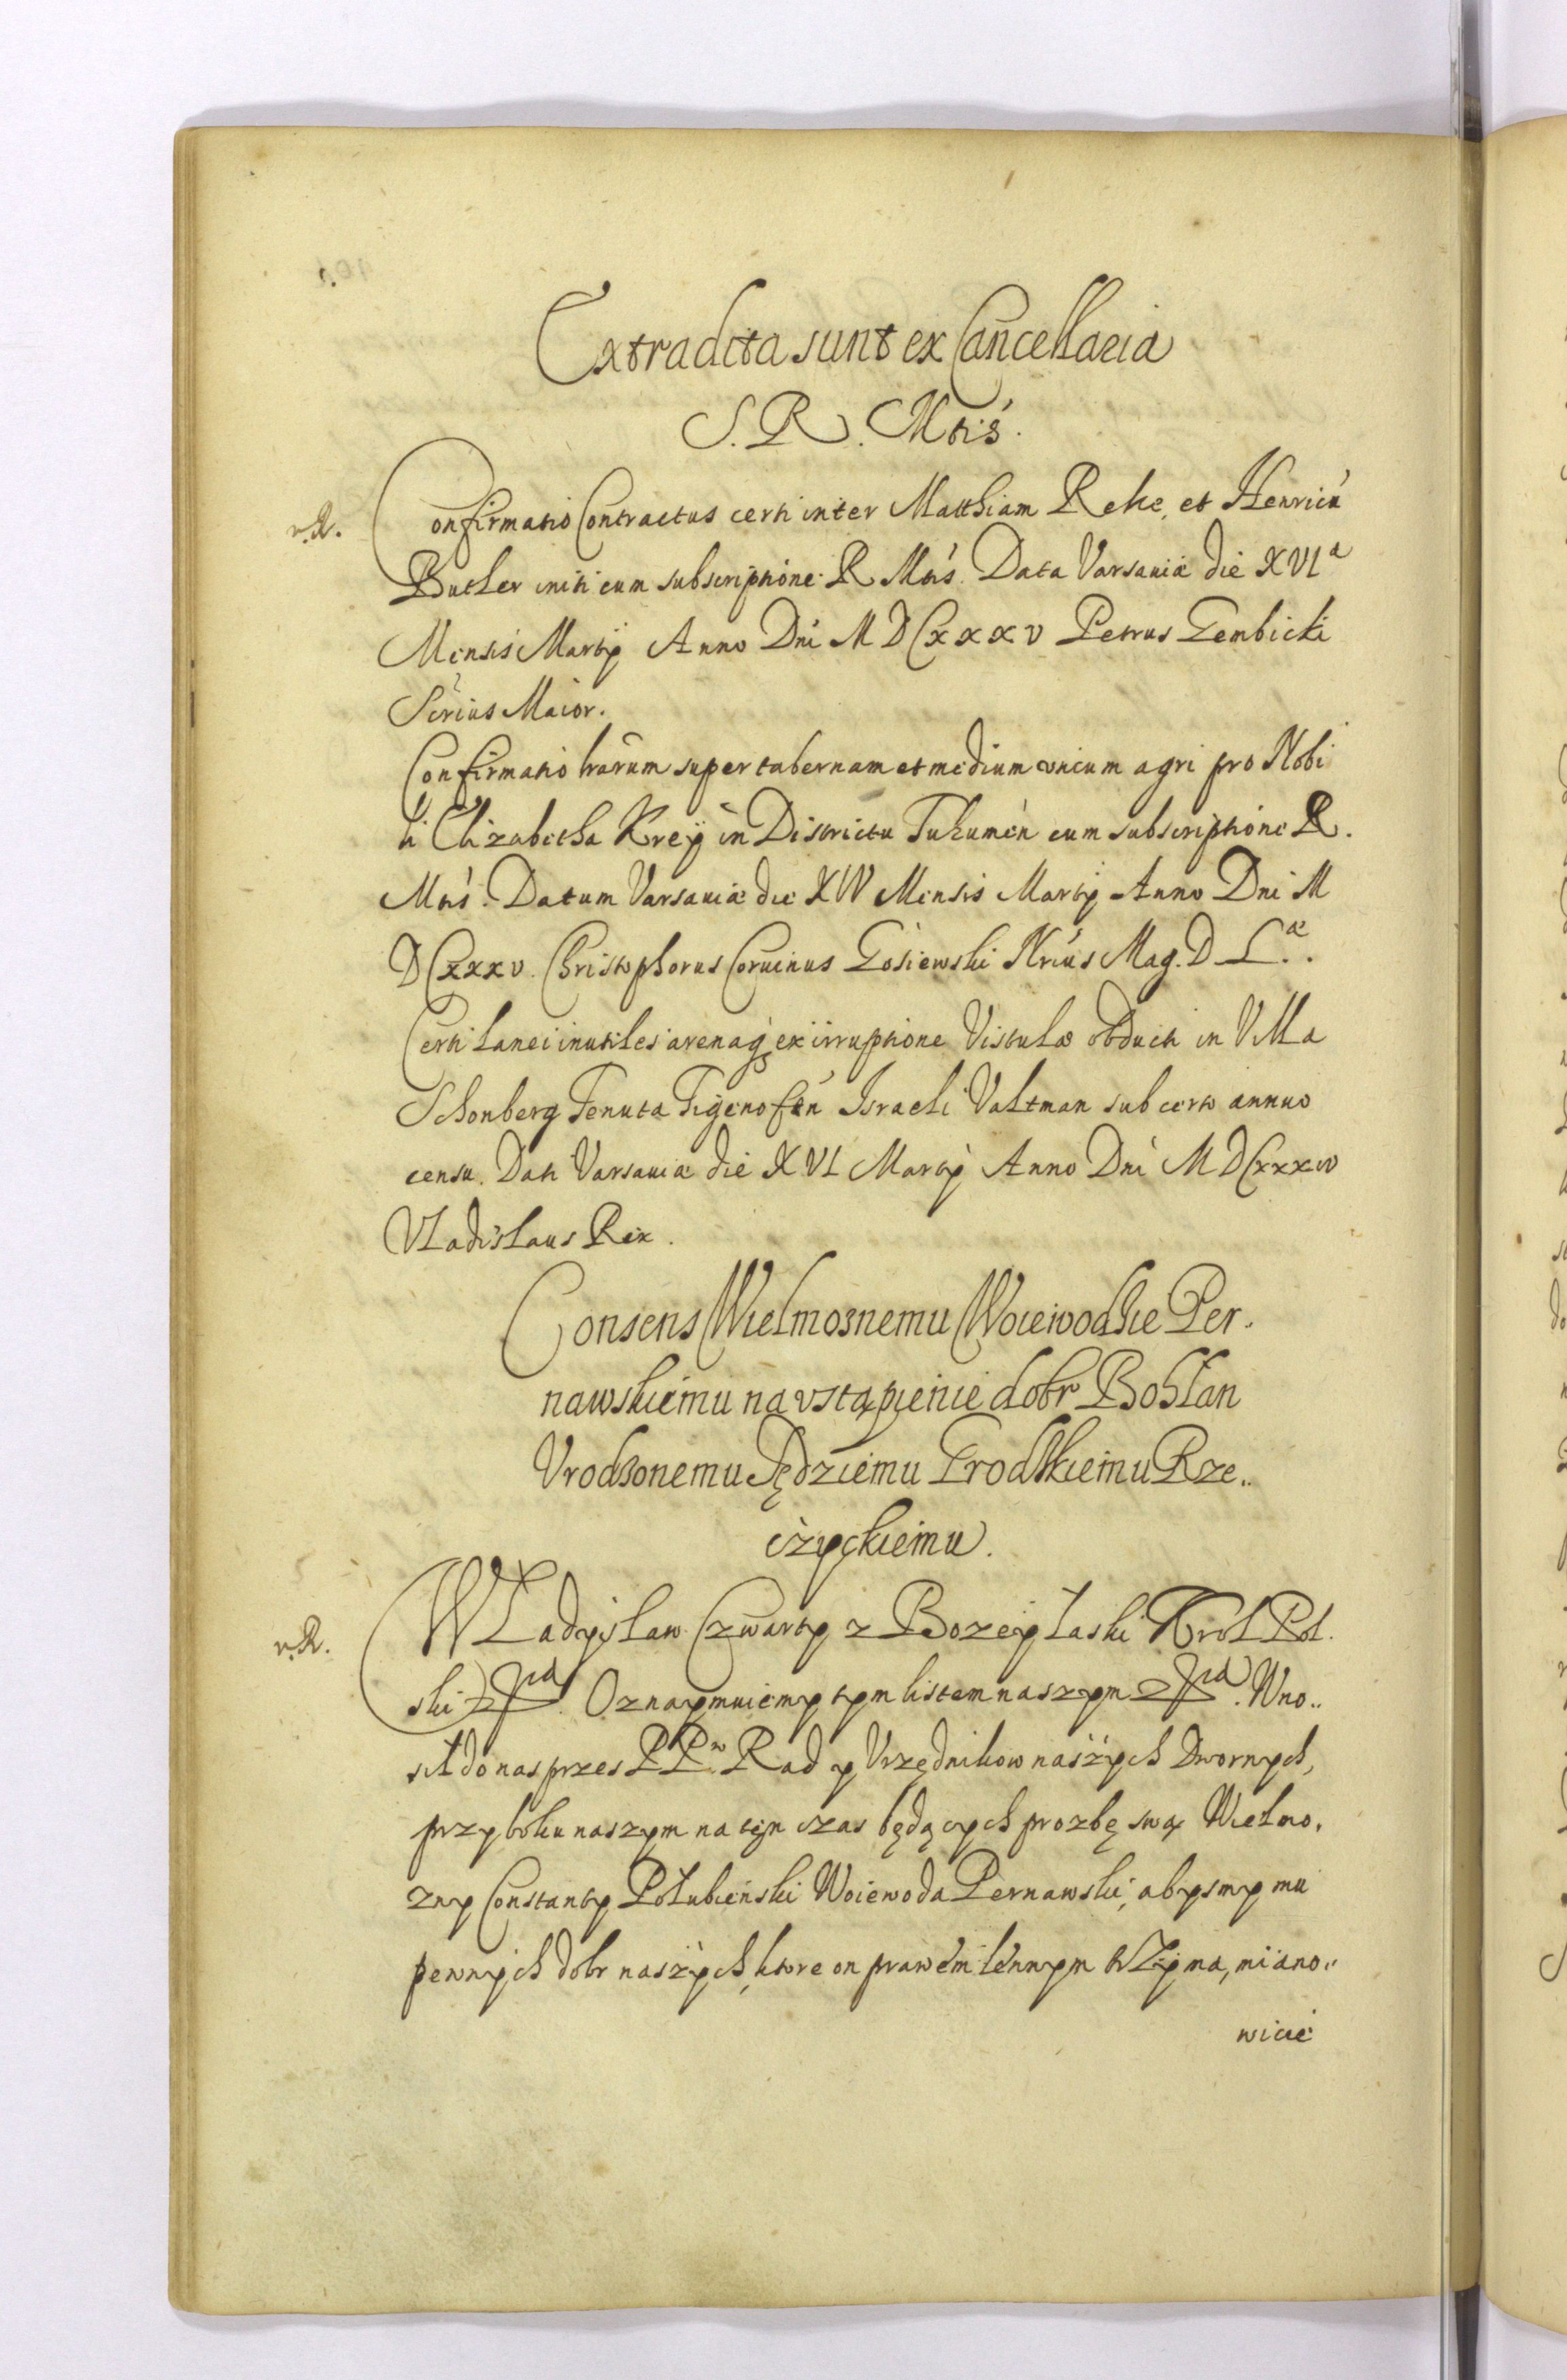 Extradita sunt ex Cancellaria
S. R. Mtis.
Confirmatio Contractus certi inter Matthiam Reke, et Henricū
Butler initi cum subscriptione R. Mtis. Data Varsaviæ die XVIa
Mensis Martÿ Anno Dni MDCxxxv Petrus Gembicki
Scrius Maior.
Confirmatio lrarum super tabernam et medium uncum agri pro Nobi
li Elizabetha Kreÿ in Districtu Tukumen cum subscriptione R.
Mtis. Datum Varsaviæ die XIV Mensis Martÿ Anno Dni M
DCxxxv. Christophorus Corvinus Gosiewski Nrius Mag. D. L.æ.
Certi Lanei inutiles arenaq ex irruptione Vistulæ obducti in Villa
Schonberg Tenuta Tigenoffen Israeli Valtman sub certo annuo
censu. Dati Varsaviæ die XVI Martÿ Anno Dni MDCxxxv
Vladislaus Rex.
Consens Wielmoznemu Woiewodzie Per.
nawskiemu na vstąpienie dobr Bohlan
Vrodzonemu Sędziemu Grodskiemu Rze..
czyckiemu.
r. R. Władysław Czwarty z Bozey Łaski Krol Pol.
ski etc. Oznaymuiemy tym listem naszym etc. Wno..
sił do nas przez PPw Rad y Vrzędnikow naszych Dwornych,
przy boku naszym na ten czas będących prozbę swą Wielmo.
zny Constanty Połubieński Woiewoda Pernawski, abysmy mu
pewnych dobr naszych, ktore on prawem lennym trzyma, miano..
wicie